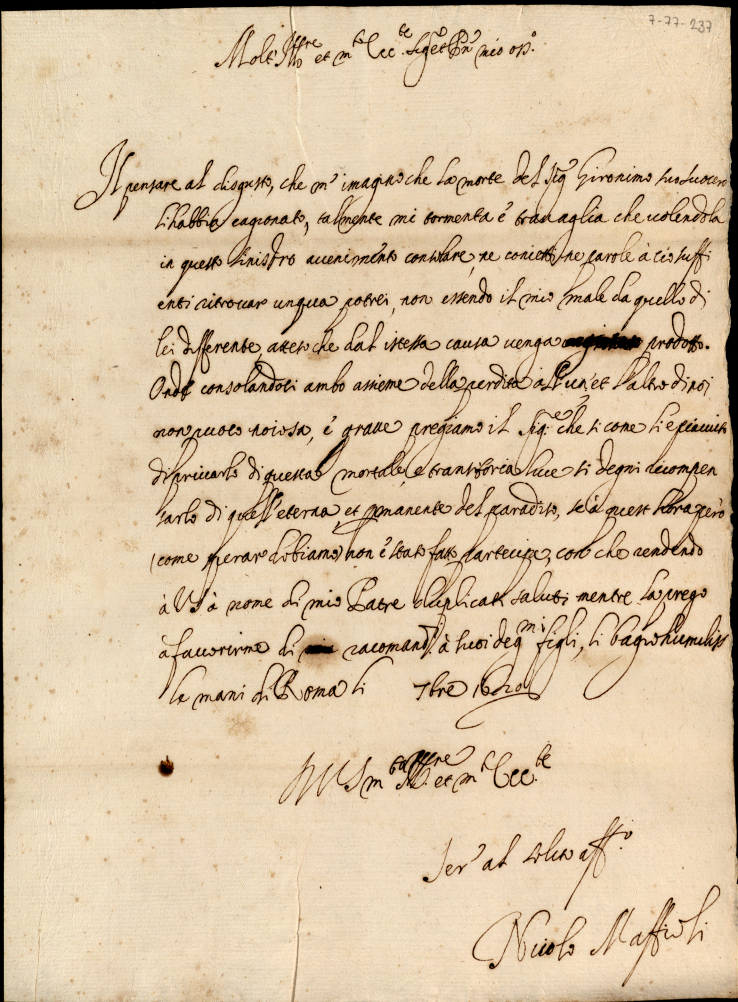 7-77-237
Molt Ill.re et m.to Ecc.te Sig.r et P.ron mio oss.o
Il pensare al disgusto, che m' imagino che la morte del Sig.r Gironimo suo suocero
li habbia cagionato, talmente mi tormenta è travaglia che volendola
in questo sinistro avenimento consolare, ne concetti ne parole à ciò suffi
enti ritrovar unqua potrei, non essendo il mio male da quello di
lei differente, atteso che dal istessa causa venga prodotto.
Onde consolandosi ambo assieme della perdita all'un' et l'altro di noi
non puoco noiosa, è grave pregiamo il Sig.re che si come li è piaciuto
di privarlo di questa mortale, e transitoria luce si degni ricompen
sarlo di quell'eterna, et permanente del paradiso, se à quest'hora però
(come sperar dobiamo) non è stato fatto partecipe, con che rendendo
à VS à nome di mio Patre duplicati saluti mentre la prego
à favorirme di racomand.mi à suoi deg.mi figli, li bagio humiliss
le mani di Roma li 7bre 1620
DVS m.to Ill.re et m.to Ecc.te
Ser.r al solito aff.o
Nicolo Maffioli